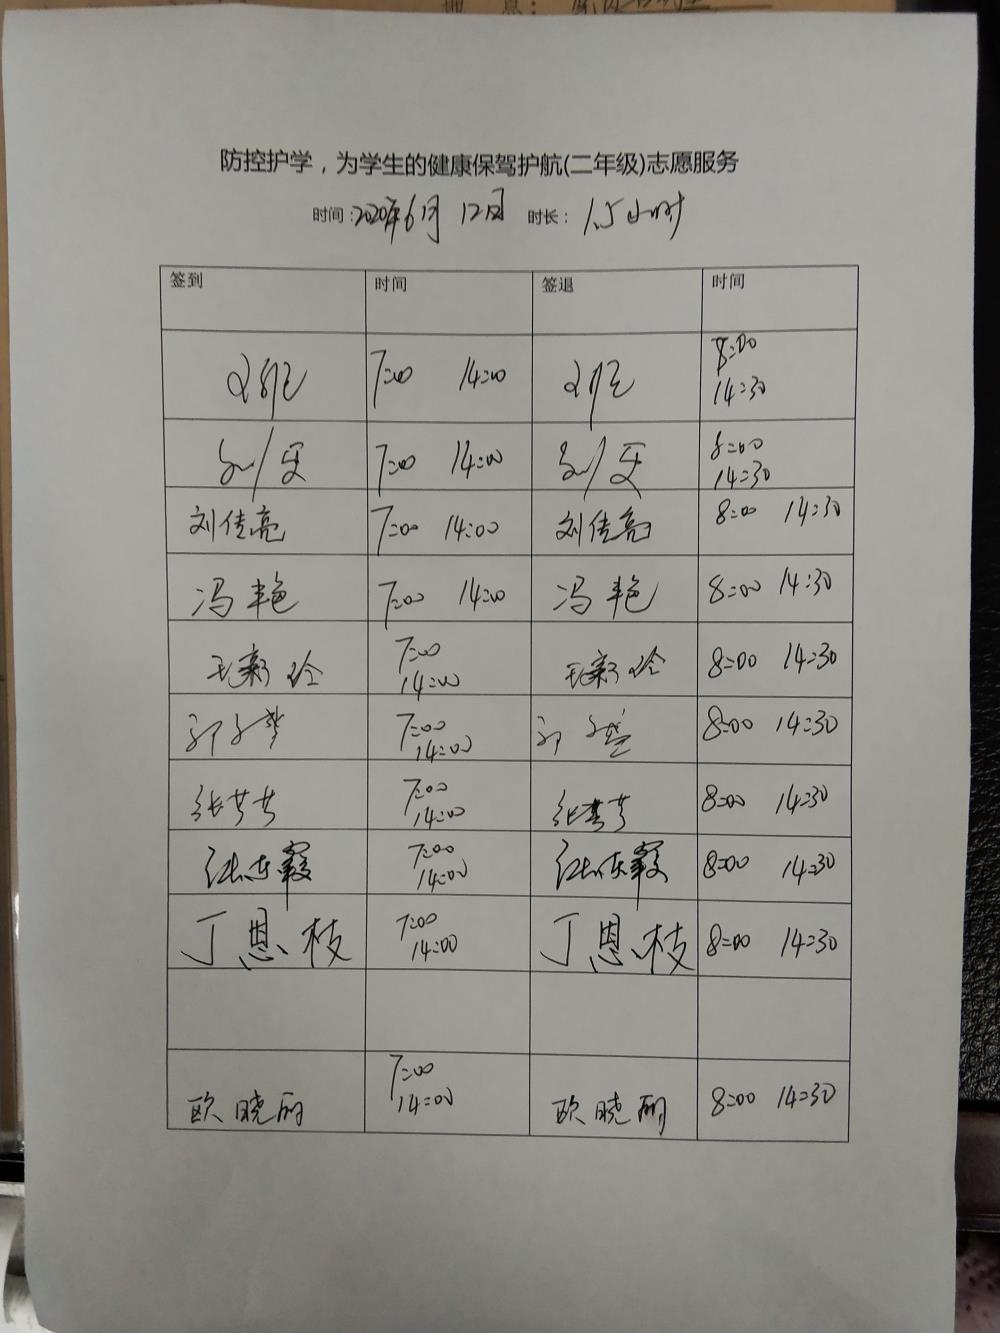 防控护学，为学生的健康保驾护航(二年级)志愿服务
时间：2020年6月 12日 时长： 1.5小时
签到 时间 签退 时间
7:00 14:00 8:00
14:30
7:00 14:00 8:00
14:30
刘传亮 7:00 14:00 刘传亮 8:00 14:30
冯艳 7:00 14:00 冯艳 8:00 14:30
7:00 8:00 14:30
14:00
7:00 8:00 14:30
14:00
张芳芳 7:00 张芳芳 8:00 14:30
14:00
7:00 8:00 14:30
14:00
丁恩枝 7:00 丁恩枝 8:00 14:30
14:00
欧晓丽 7:00 欧晓丽 8:00 14:30
14:00